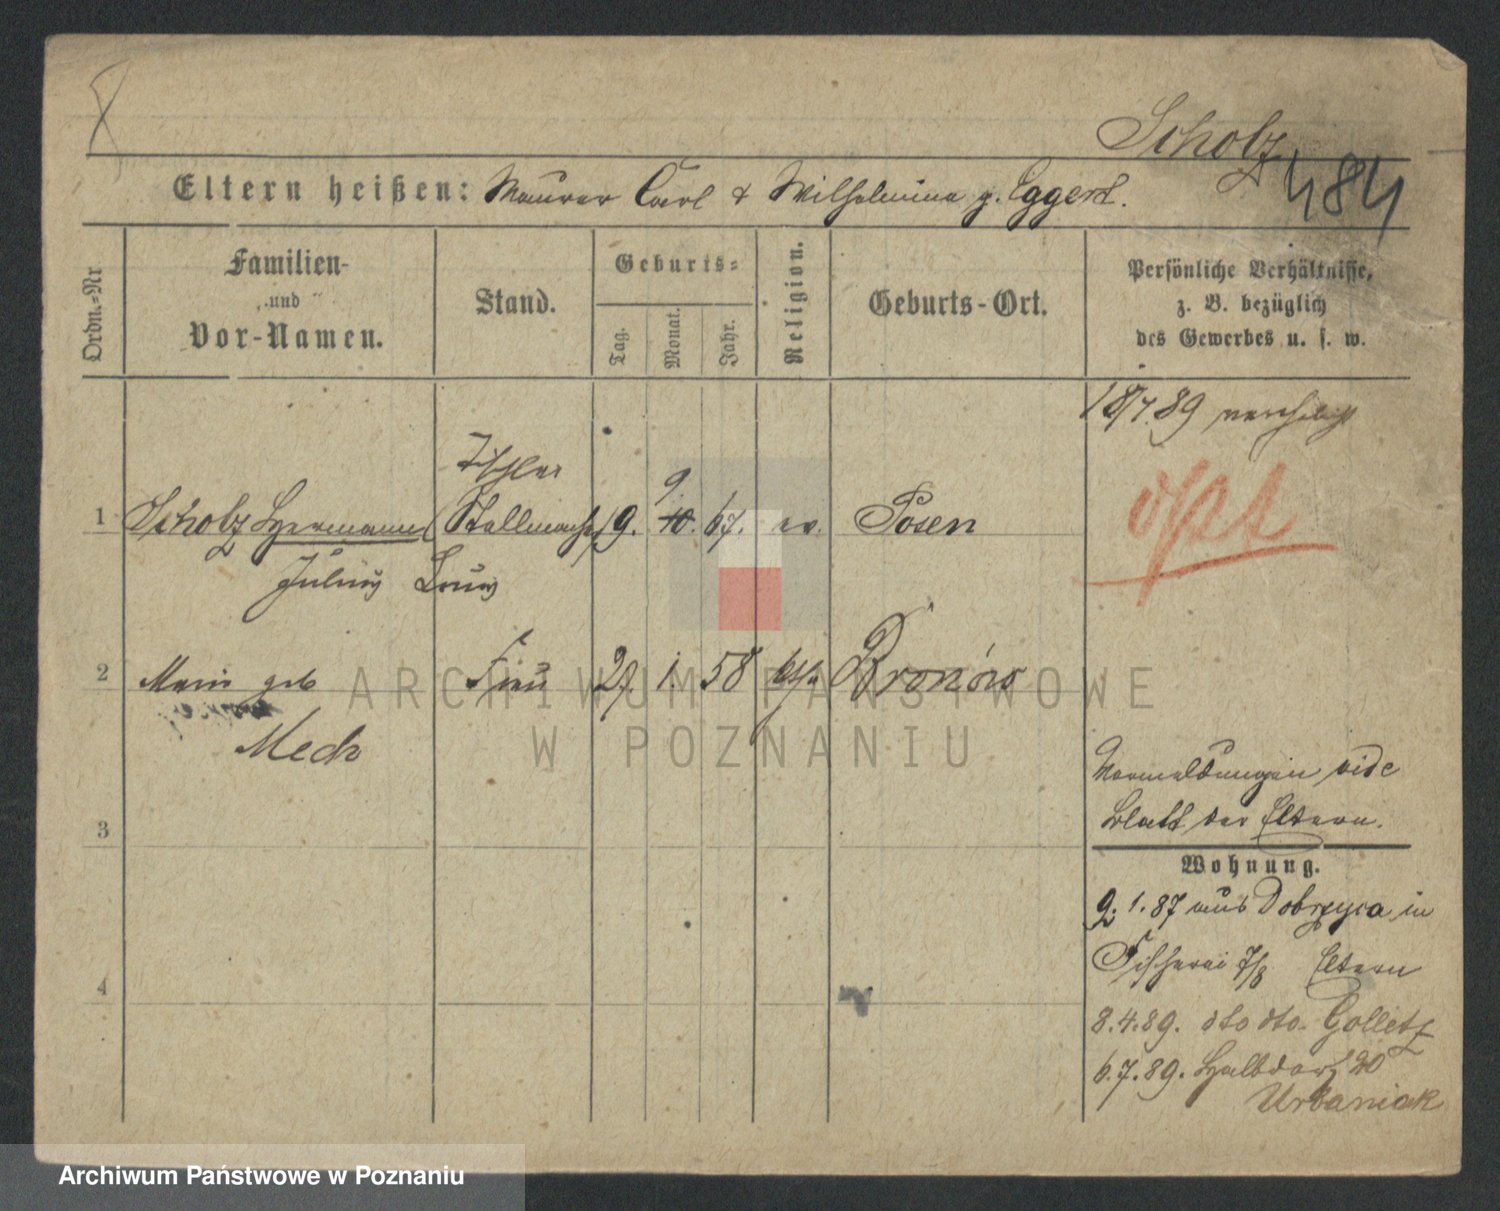 Scholz
484
Eltern heißen: Maurer Carl & Wilhelmina g. Eggert.
Ordn.-Nr
Familien- und Vor-Namen.
Stand.
Geburts-
Tag.
Monat.
Jahr.
Religion.
Geburts-Ort.
Persönliche Verhältnisse,
z. B. bezüglich
des Gewerbes u. s. w.
18/7.89 verehelicht
Tischler
9.
1 Scholz Hermann (Stellmacher) 9. 10. 67. ev. Posen
Julius
2 Marie geb Frau 27. 1. 58 kth
Mech
3
Vermeldungen vide
Blatt der Eltern.
Wohnung.
9.1.87 aus Dobrzyca in
Fischerei 7/8 Eltern
4
8.4.89. dto dto. Golletz
6.7.89. Halbdorf 20
Urbaniak
ARCHIWUM PAŃSTWOWE
W POZNANIU
Archiwum Państwowe w Poznaniu